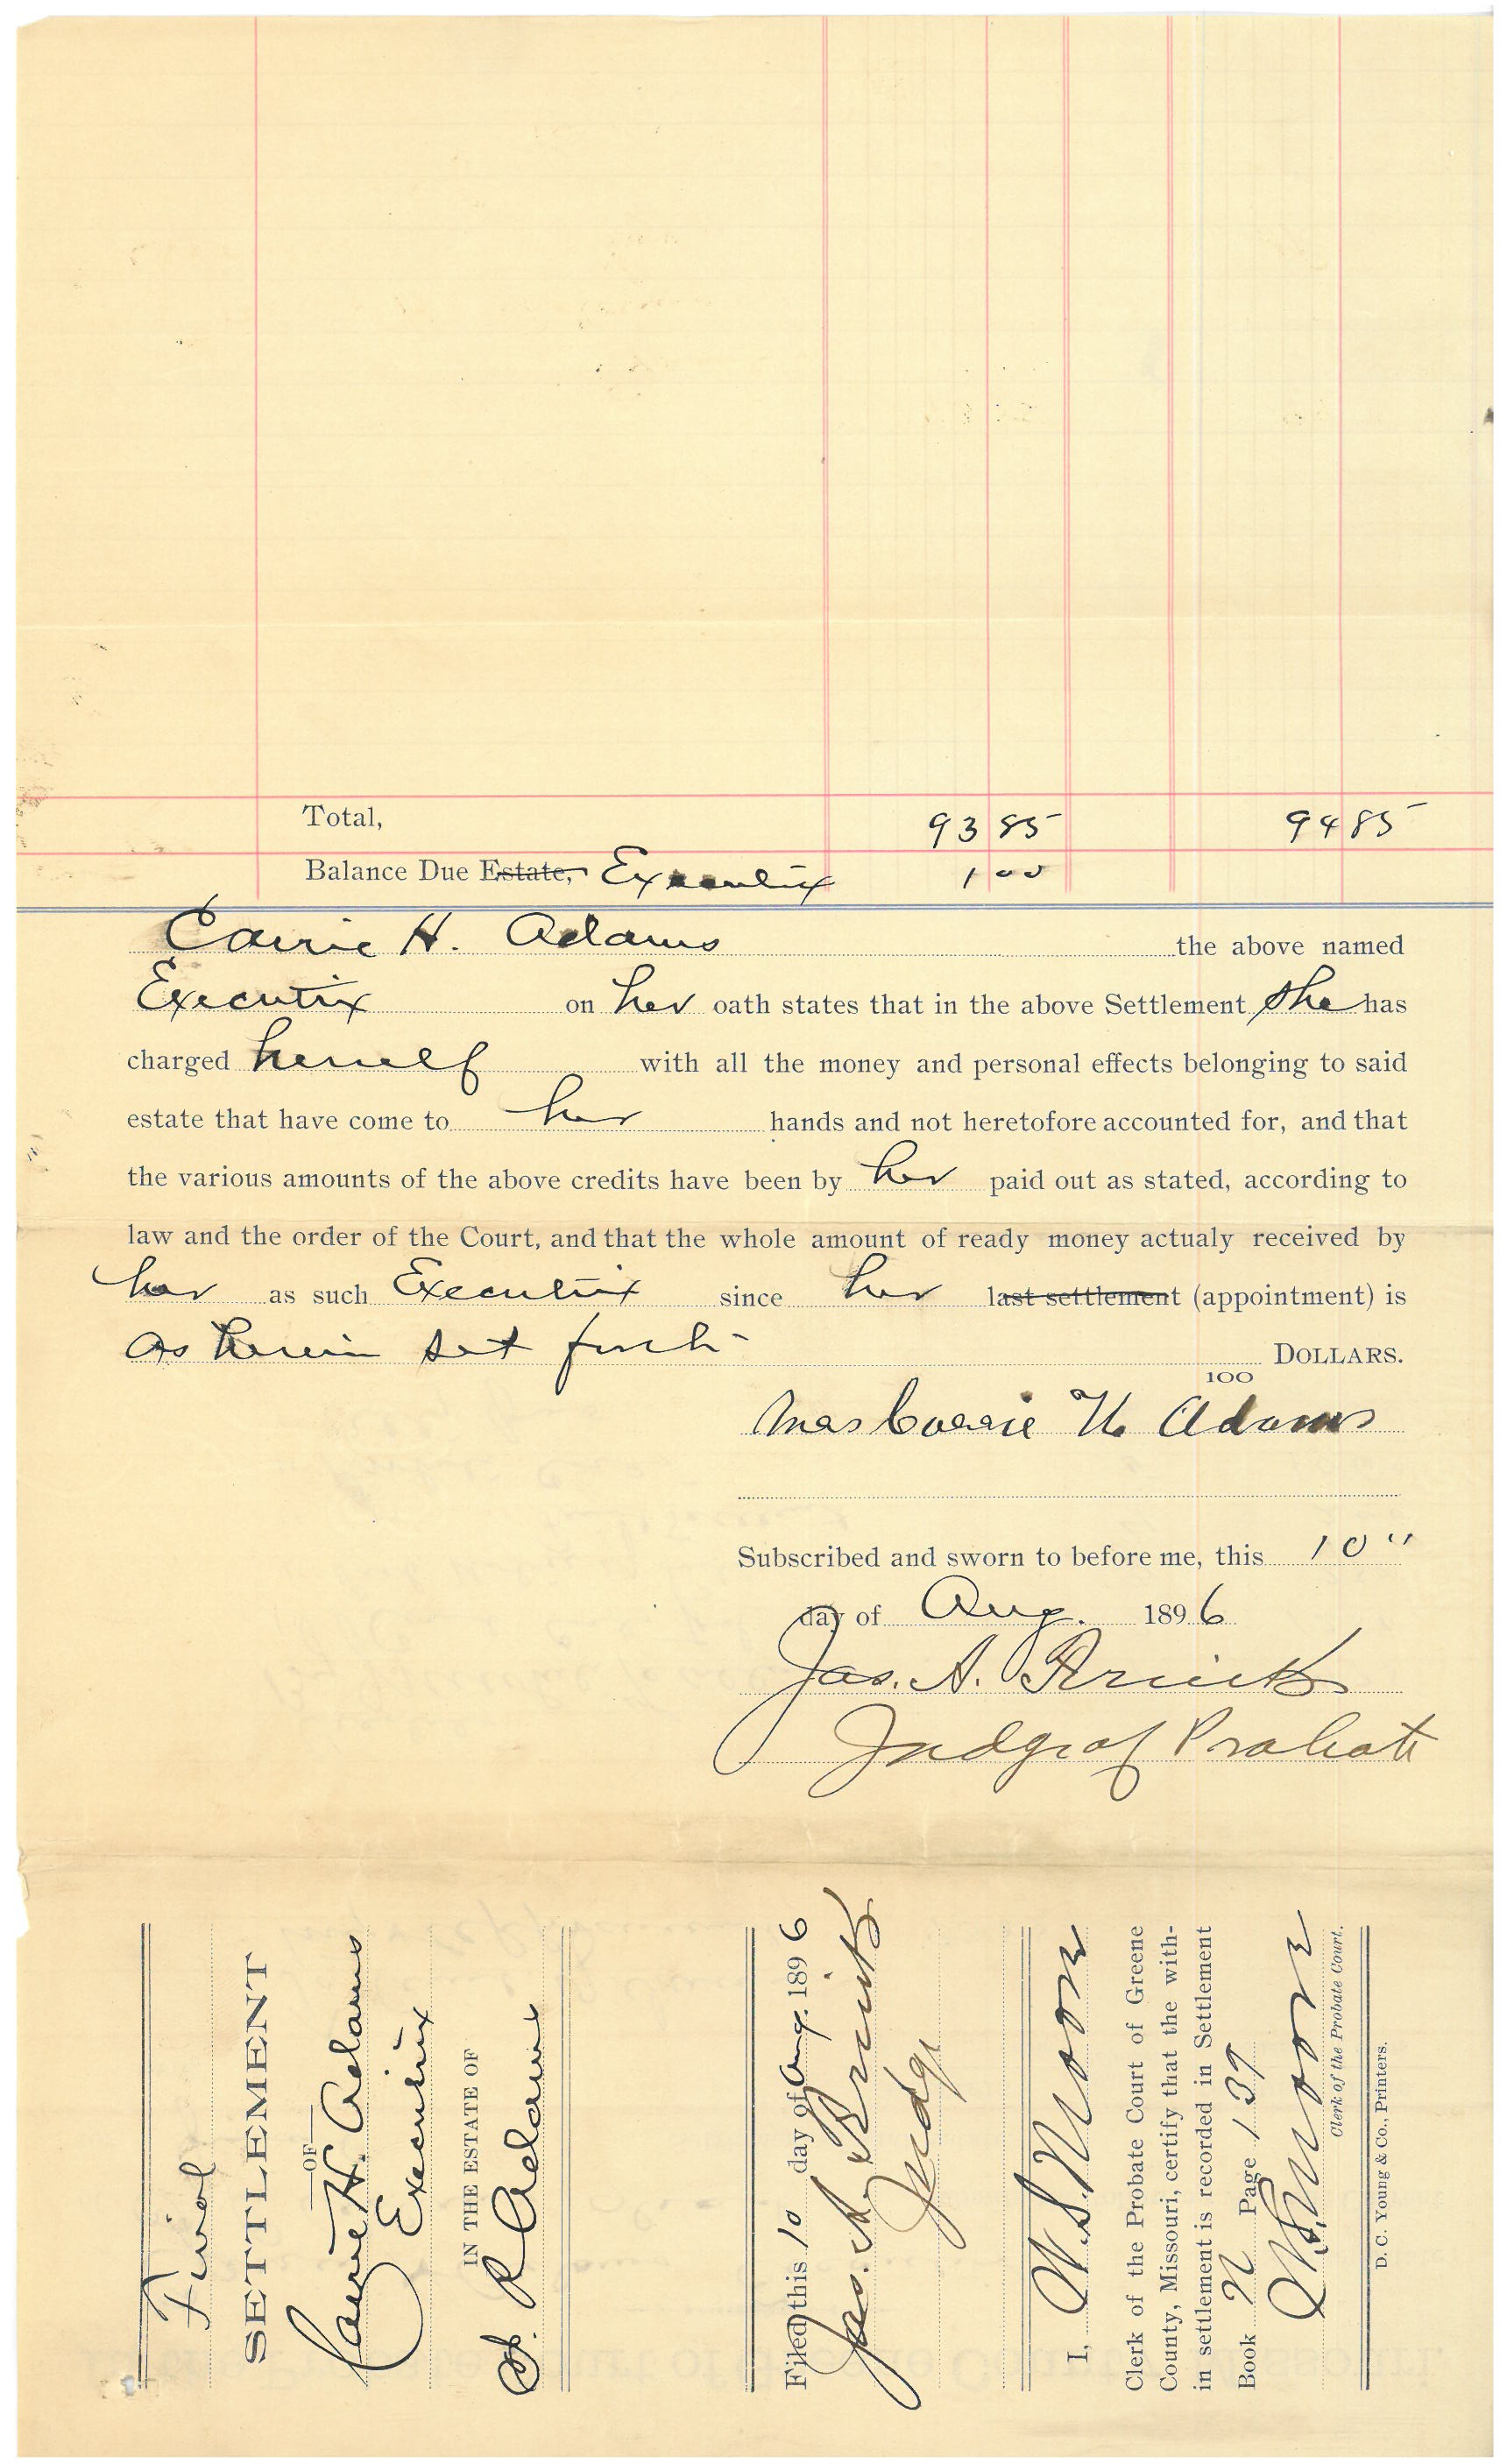 Total, 93 85 94 85
Balance Due Estate, Executrix 1 00
Carrie H. Adams the above named
Executrix on her oath states that in the above Settlement She has
charged herself with all the money and personal effects belonging to said
estate that have come to her hands and not heretofore accounted for, and that
the various amounts of the above credits have been by her paid out as stated, according to
law and the order of the Court, and that the whole amount of ready money actualy received by
her as such Executrix since her last settlement (appointment) is
as herein set forth DOLLARS.
100
Mrs Carrie H Adams
Subscribed and sworn to before me, this 10"
day of Aug. 1896
Jas. A.
Judge of Probate
Final
SETTLEMENT
OF
Carrie H. Adams
Executrix
IN THE ESTATE OF
S. R Adams
Filed this 10 day of Aug. 1896
Jas. A.
Judge
I, W. S. Moore
Clerk of the Probate Court of Greene
County, Missouri, certify that the with-
in settlement is recorded in Settlement
Book N Page 137
W. S. Moore
Clerk of the Probate Court.
D. C. Young & Co., Printers.